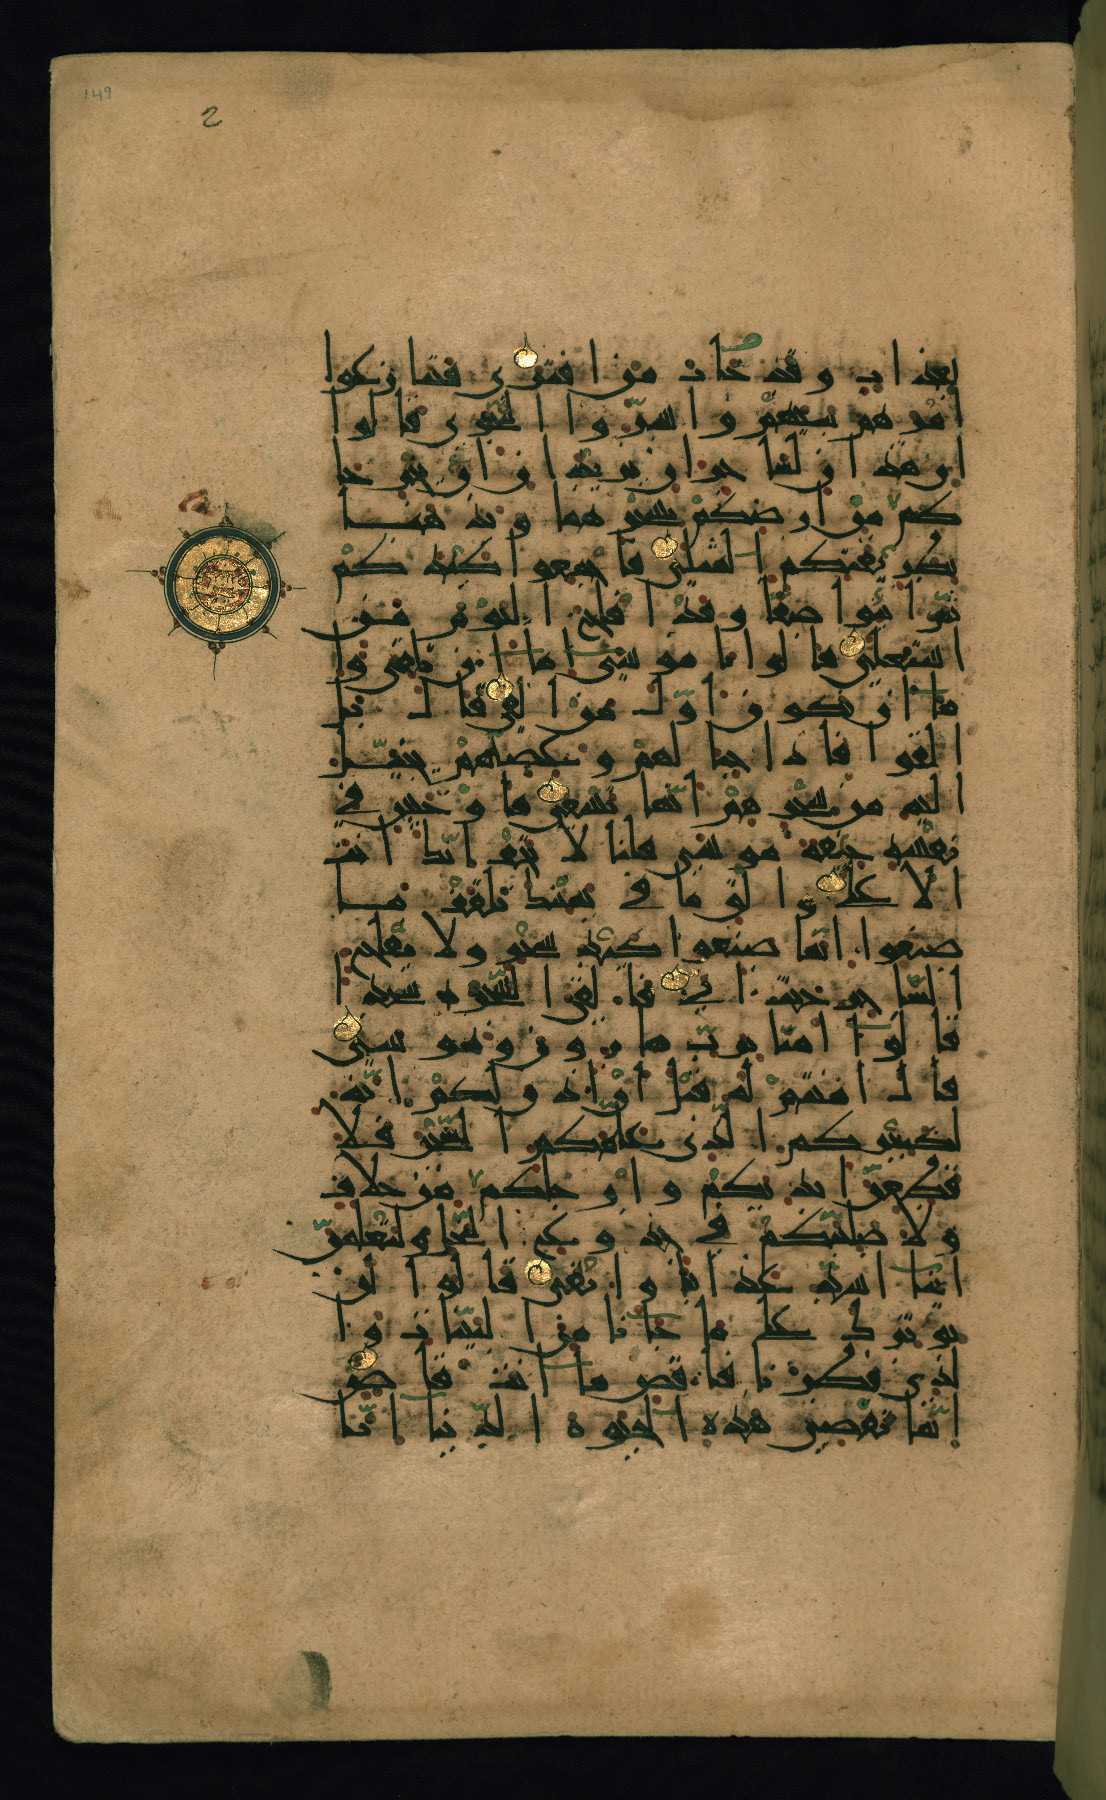 149
2
بعذاب وقد خاب من افترى فتنازعوا
امرهم بينهم واسروا النجوى قالوا
ان هذان لساحران يريدان ان يخرجا
كم من ارضكم بسحرهما ويذهبا
بطريقتكم المثلى فاجمعوا كيدكم
ثم ائتوا صفا وقد افلح اليوم من
استعلى قالوا يا موسى اما ان تلقى وا
ما ان نكون اول من القى قال بل
القوا فاذا حبالهم وعصيهم يخيل
اليه من سحرهم انها تسعى فاوجس في
نفسه خيفة موسى قلنا لا تخف انك انت
الاعلى والق ما في يمينك تلقف ما
صنعوا انما صنعوا كيد سحر ولا يفلح
الساحر حيث اتى فالقى السحرة سجدا
قالوا امنا برب هارون وموسى
قال امنتم له قبل ان اذن لكم انه
لكبيركم الذي علمكم السحر فلا
قطعن ايديكم وارجلكم من خلاف
ولاصلبنكم في جذوع النخل ولتعلمن
اينا اشد عذابا وابقى قالوا لن
نوثرك على ما جانا من البينات وا
لذي فطرنا فاقض ما انت قاض
انما تقضي هذه الحيوة الدنيا انا